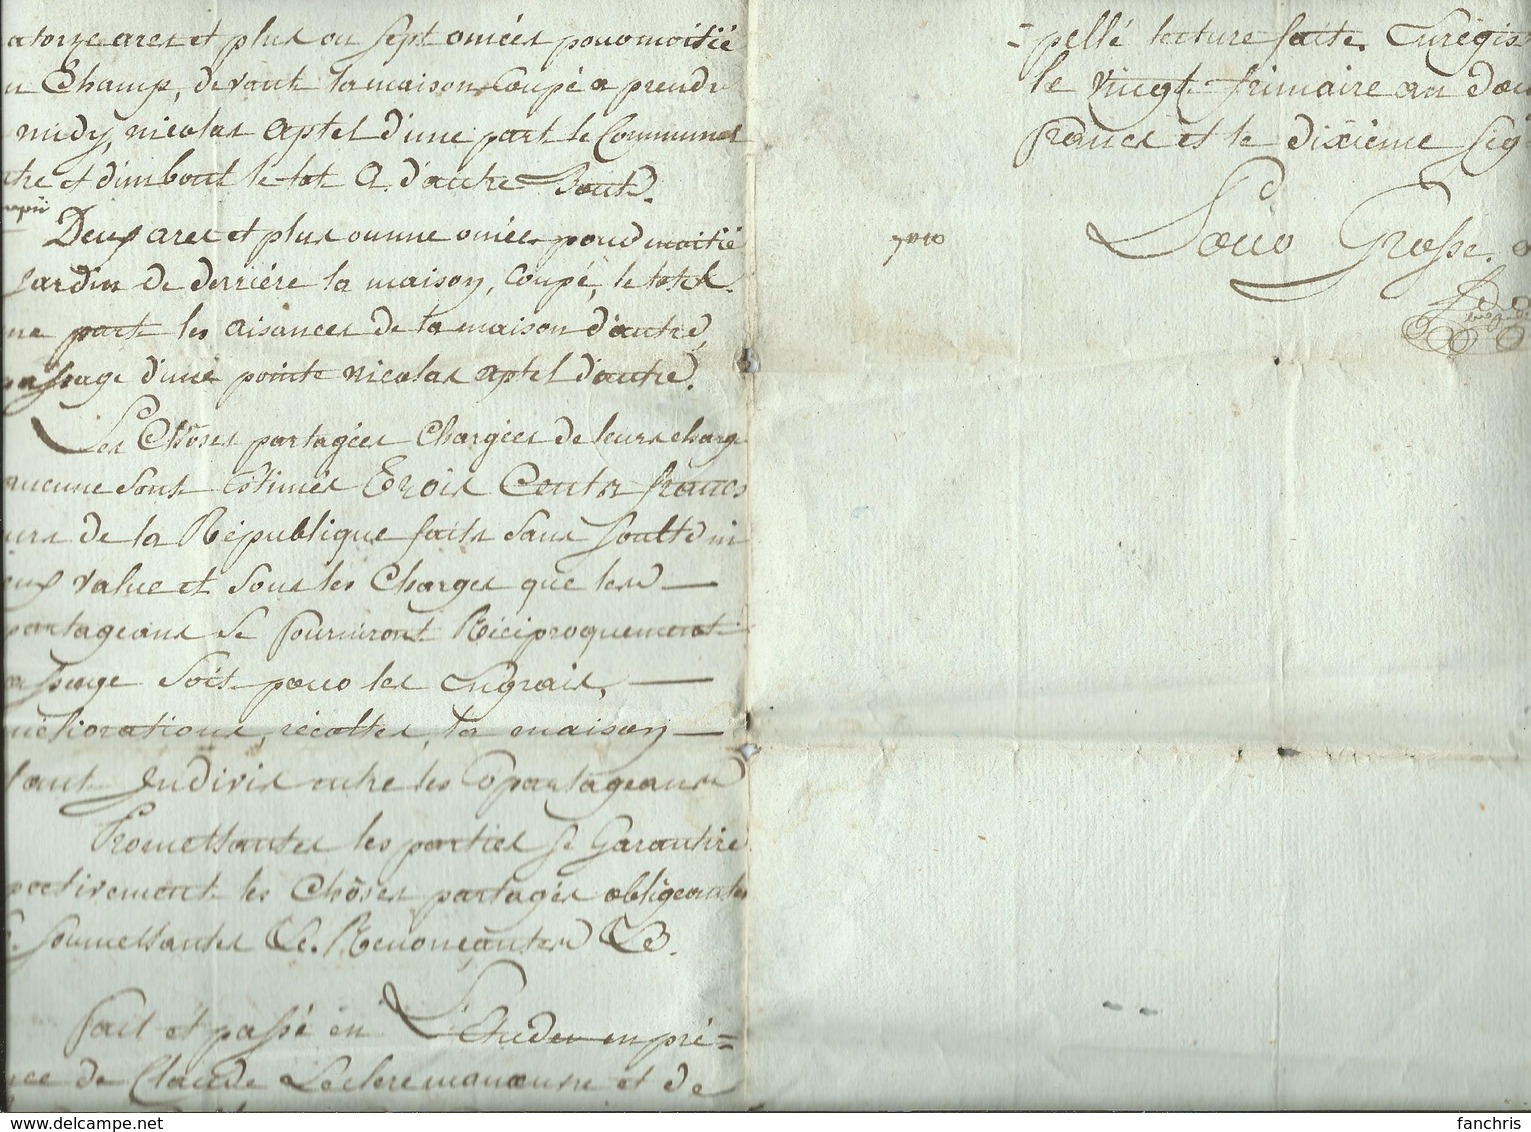 atorze ares et plus ou sept omées pour moitié
Champ, devant la maison Coupé a prendre
midy, nicolas aptel d'une part le Communal
tre et d'un bout le lot A d'autre Bout.
Deux ares et plus ou une omée pour moitié
Jardin de derriére la maison, Coupé, le lot
une part les aisances de la maison d'autre,
passage d'une pointe nicolas aptel d'autre.
Les Chôses partagées Chargées de leurs charge
aucune sont Estimés Trois Cents francs
urs de la République faits sans soulte ni
eux value et sous les Charges que les —
partageans se fourniront Réciproquement
passage soit pour les Engrais, —
méliorations, récoltes, la maison —
tant Indivis entre les Copartageans
Promettantes les parties se Garantire
pectivement les Chôses partagés obligeantes
soumettantes &e. Renonçantes &e.
fait et passé en L'Etude en pré=
nce de Claude Leclere manœuvre et de
=pellé lecture faite. Enregis
le vingt frimaire an dou
francs et le dixiéme Sig
Pour Grosse.
delcampe.net
fanchris